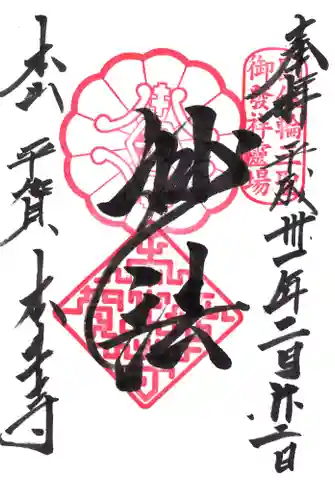 奉拝 平成卅一年二月廿二日
御發祥霊場
妙法
本山 平賀 本土寺